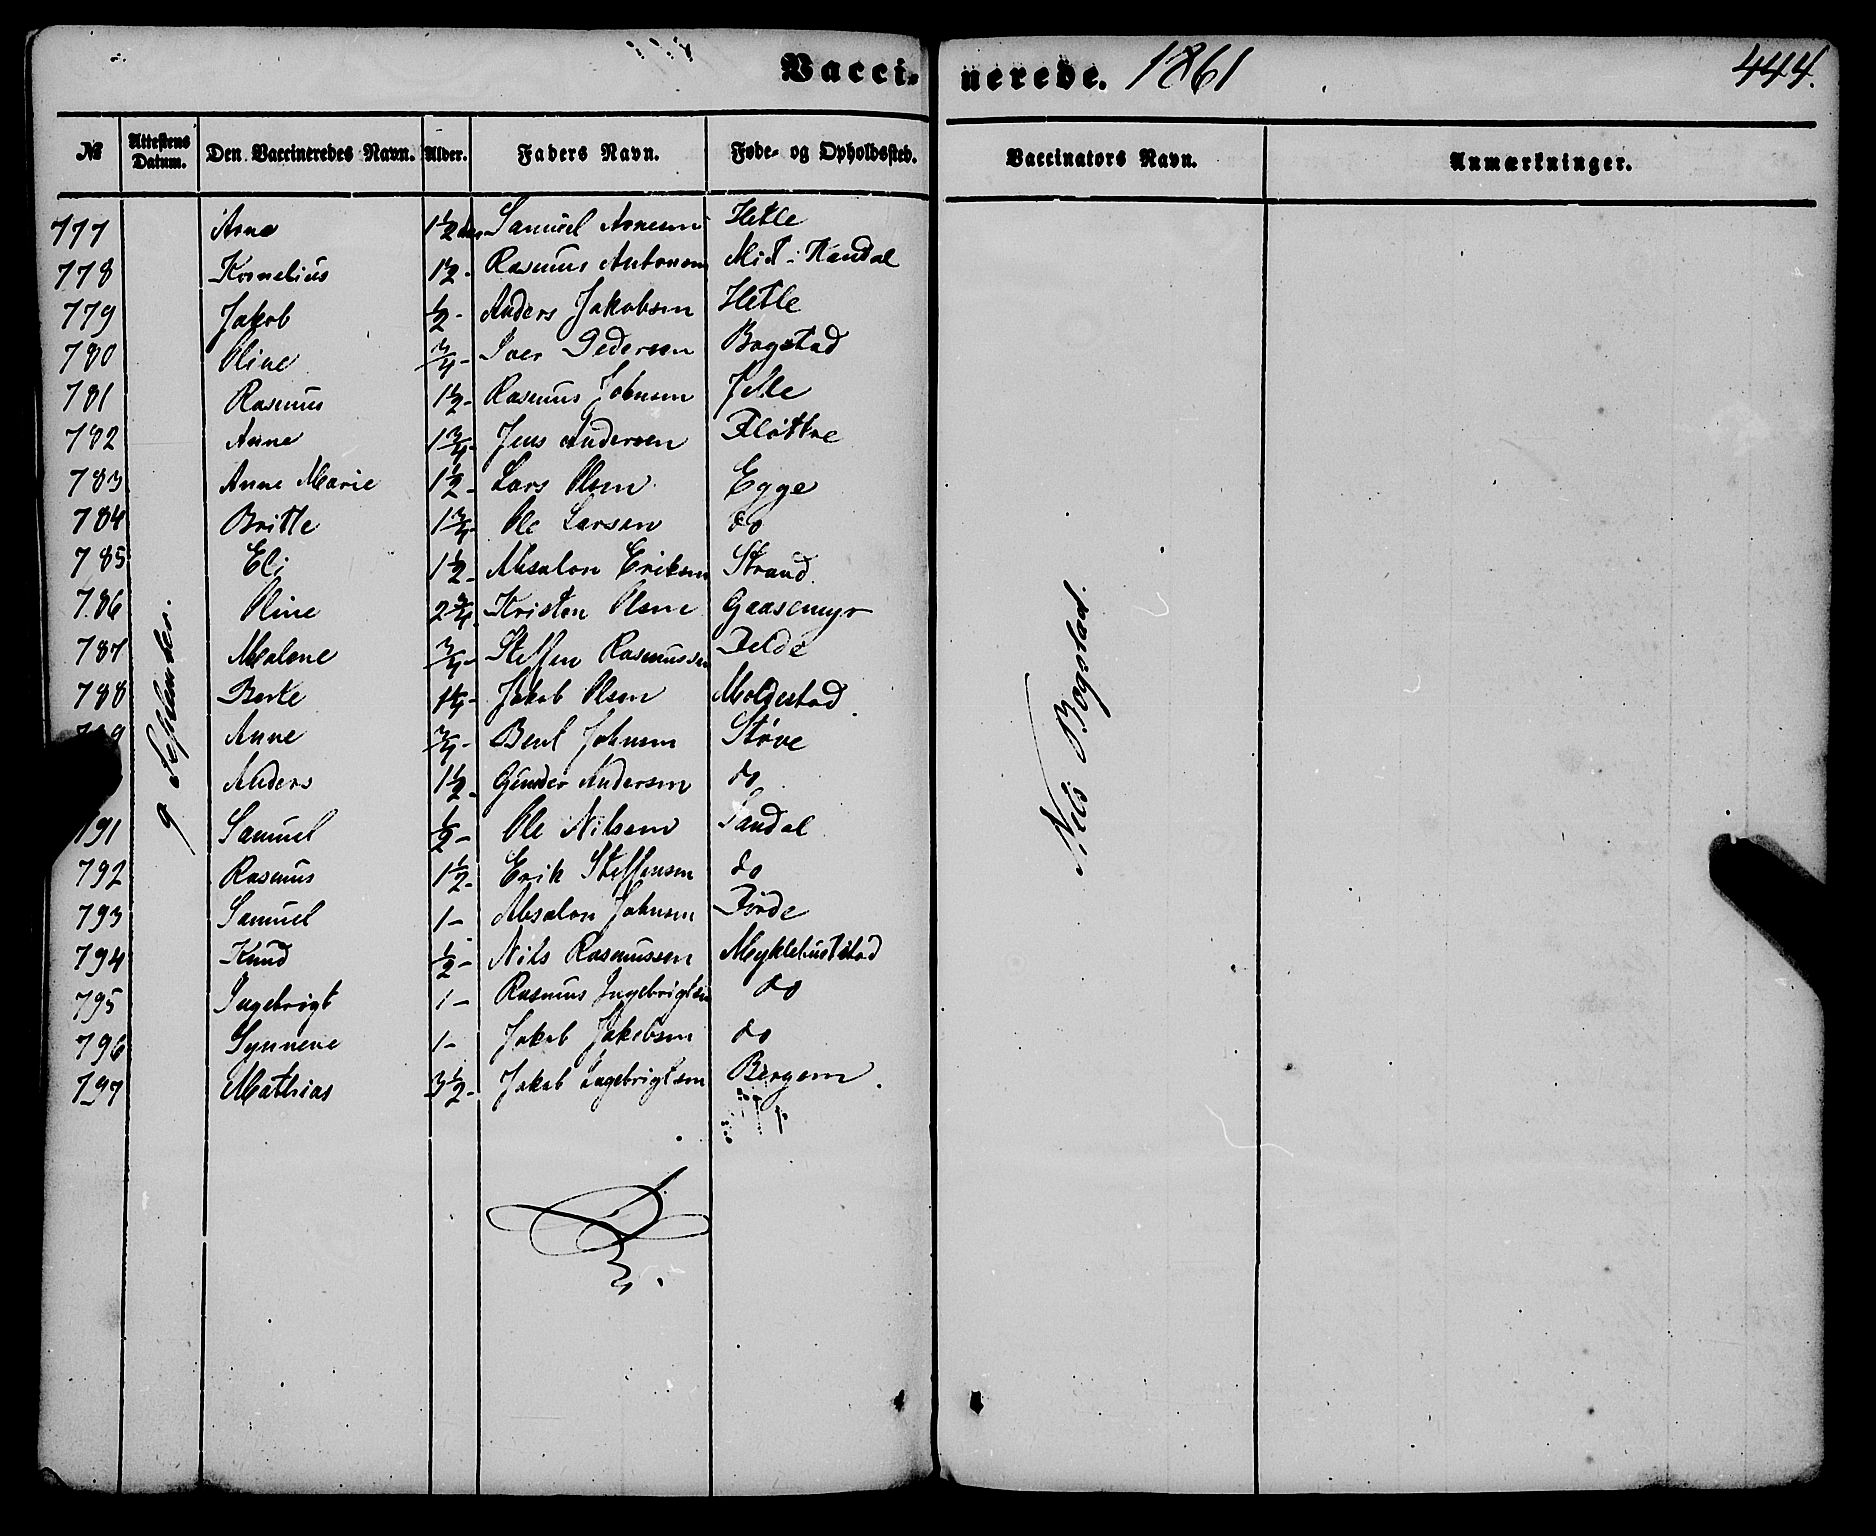 Vaccinerede. 1861 444.
№ Attestens Datum. Den Vaccineredes Navn. Alder. Faders Navn. Føde- og Opholdssted. Vaccinators Navn. Anmærkninger.
9 September.
777 Arne 1½ Samuel Arnesen Hetle
778 Kornelius 1½- Rasmus Antonsen Midt i Nandal
779 Jakob ½- Anders Jakobsen Hetle
780 Oline ¾- Iver Pedersen Bogstad
781 Rasmus 1½- Rasmus Johnsen
782 Anne 1¾- Jens Andersen Fløttre
783 Anne Marie 1½- Lars Olsen Egge
784 Britte 1¾- Ole Larsen do
785 Eli 1½- Absalon Eriksen Strand
786 Oline 2¾- Kristen Olsen Gaasemyr
787 Malene ¾- Steffen Rasmussen
788 Berte 1¼- Jakob Olsen Moldestad
Anne ¾- Bent Johnsen Støve
Anders 1½- Gunder Andersen do
791 Samuel ½- Ole Nilsen Sandal
792 Rasmus 1½- Erik Steffensen do
793 Samuel 1- Absalon Johnsen Førde
794 Knud ½- Nils Rasmussen Myklebuststad
795 Ingebrigt 1- Rasmus Ingebrigtsen do
796 Synneve 1- Jakob Jakobsen do
797 Mathias 3½- Jakob Ingebrigtsen Bergem.
Nils Bogstad.